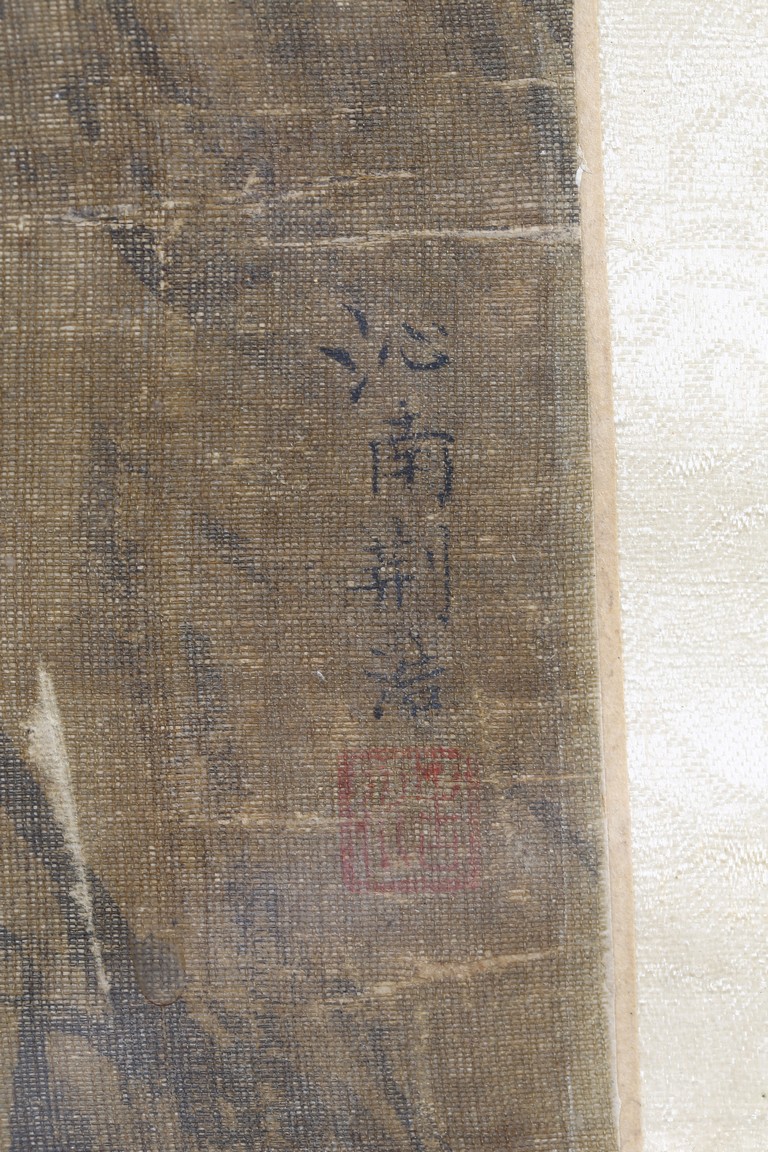 沁南荆浩